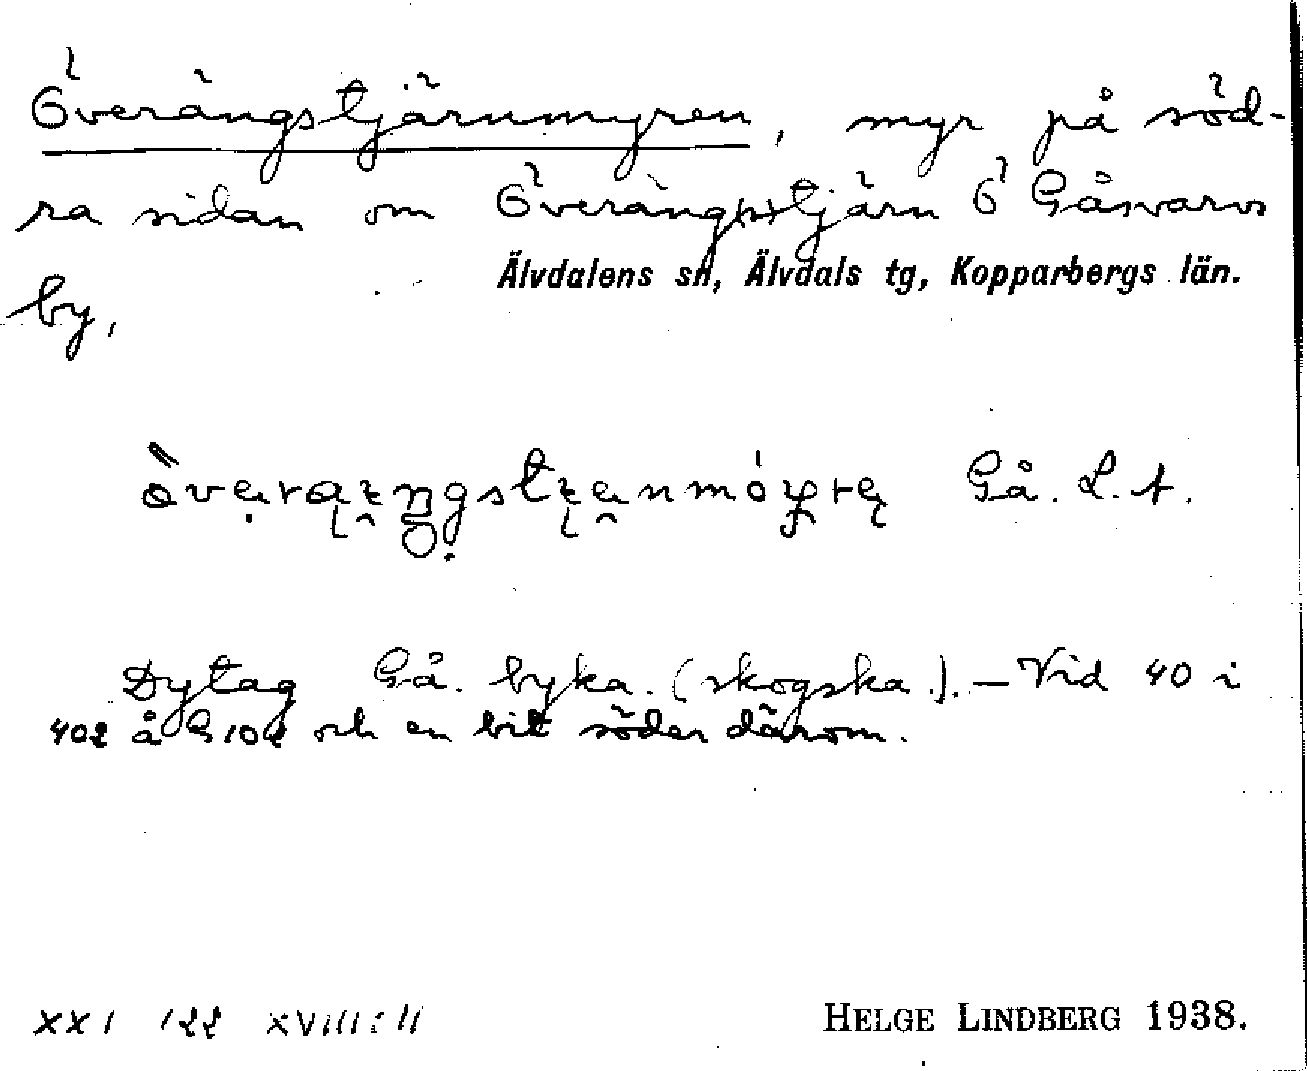 Överängstjärnmyren, myr på söd-
ra sidan om Överängstjärn Ö Gåsvarvs
Älvdalens sn, Älvdals tg, Kopparbergs län.
by,
Gå. L. A.
Dytag Gå. byka. (skogska.). — Vid 40 i
402 å G 102 och en bit söder därom.
XXI 122 XVIII:11
HELGE LINDBERG 1938.